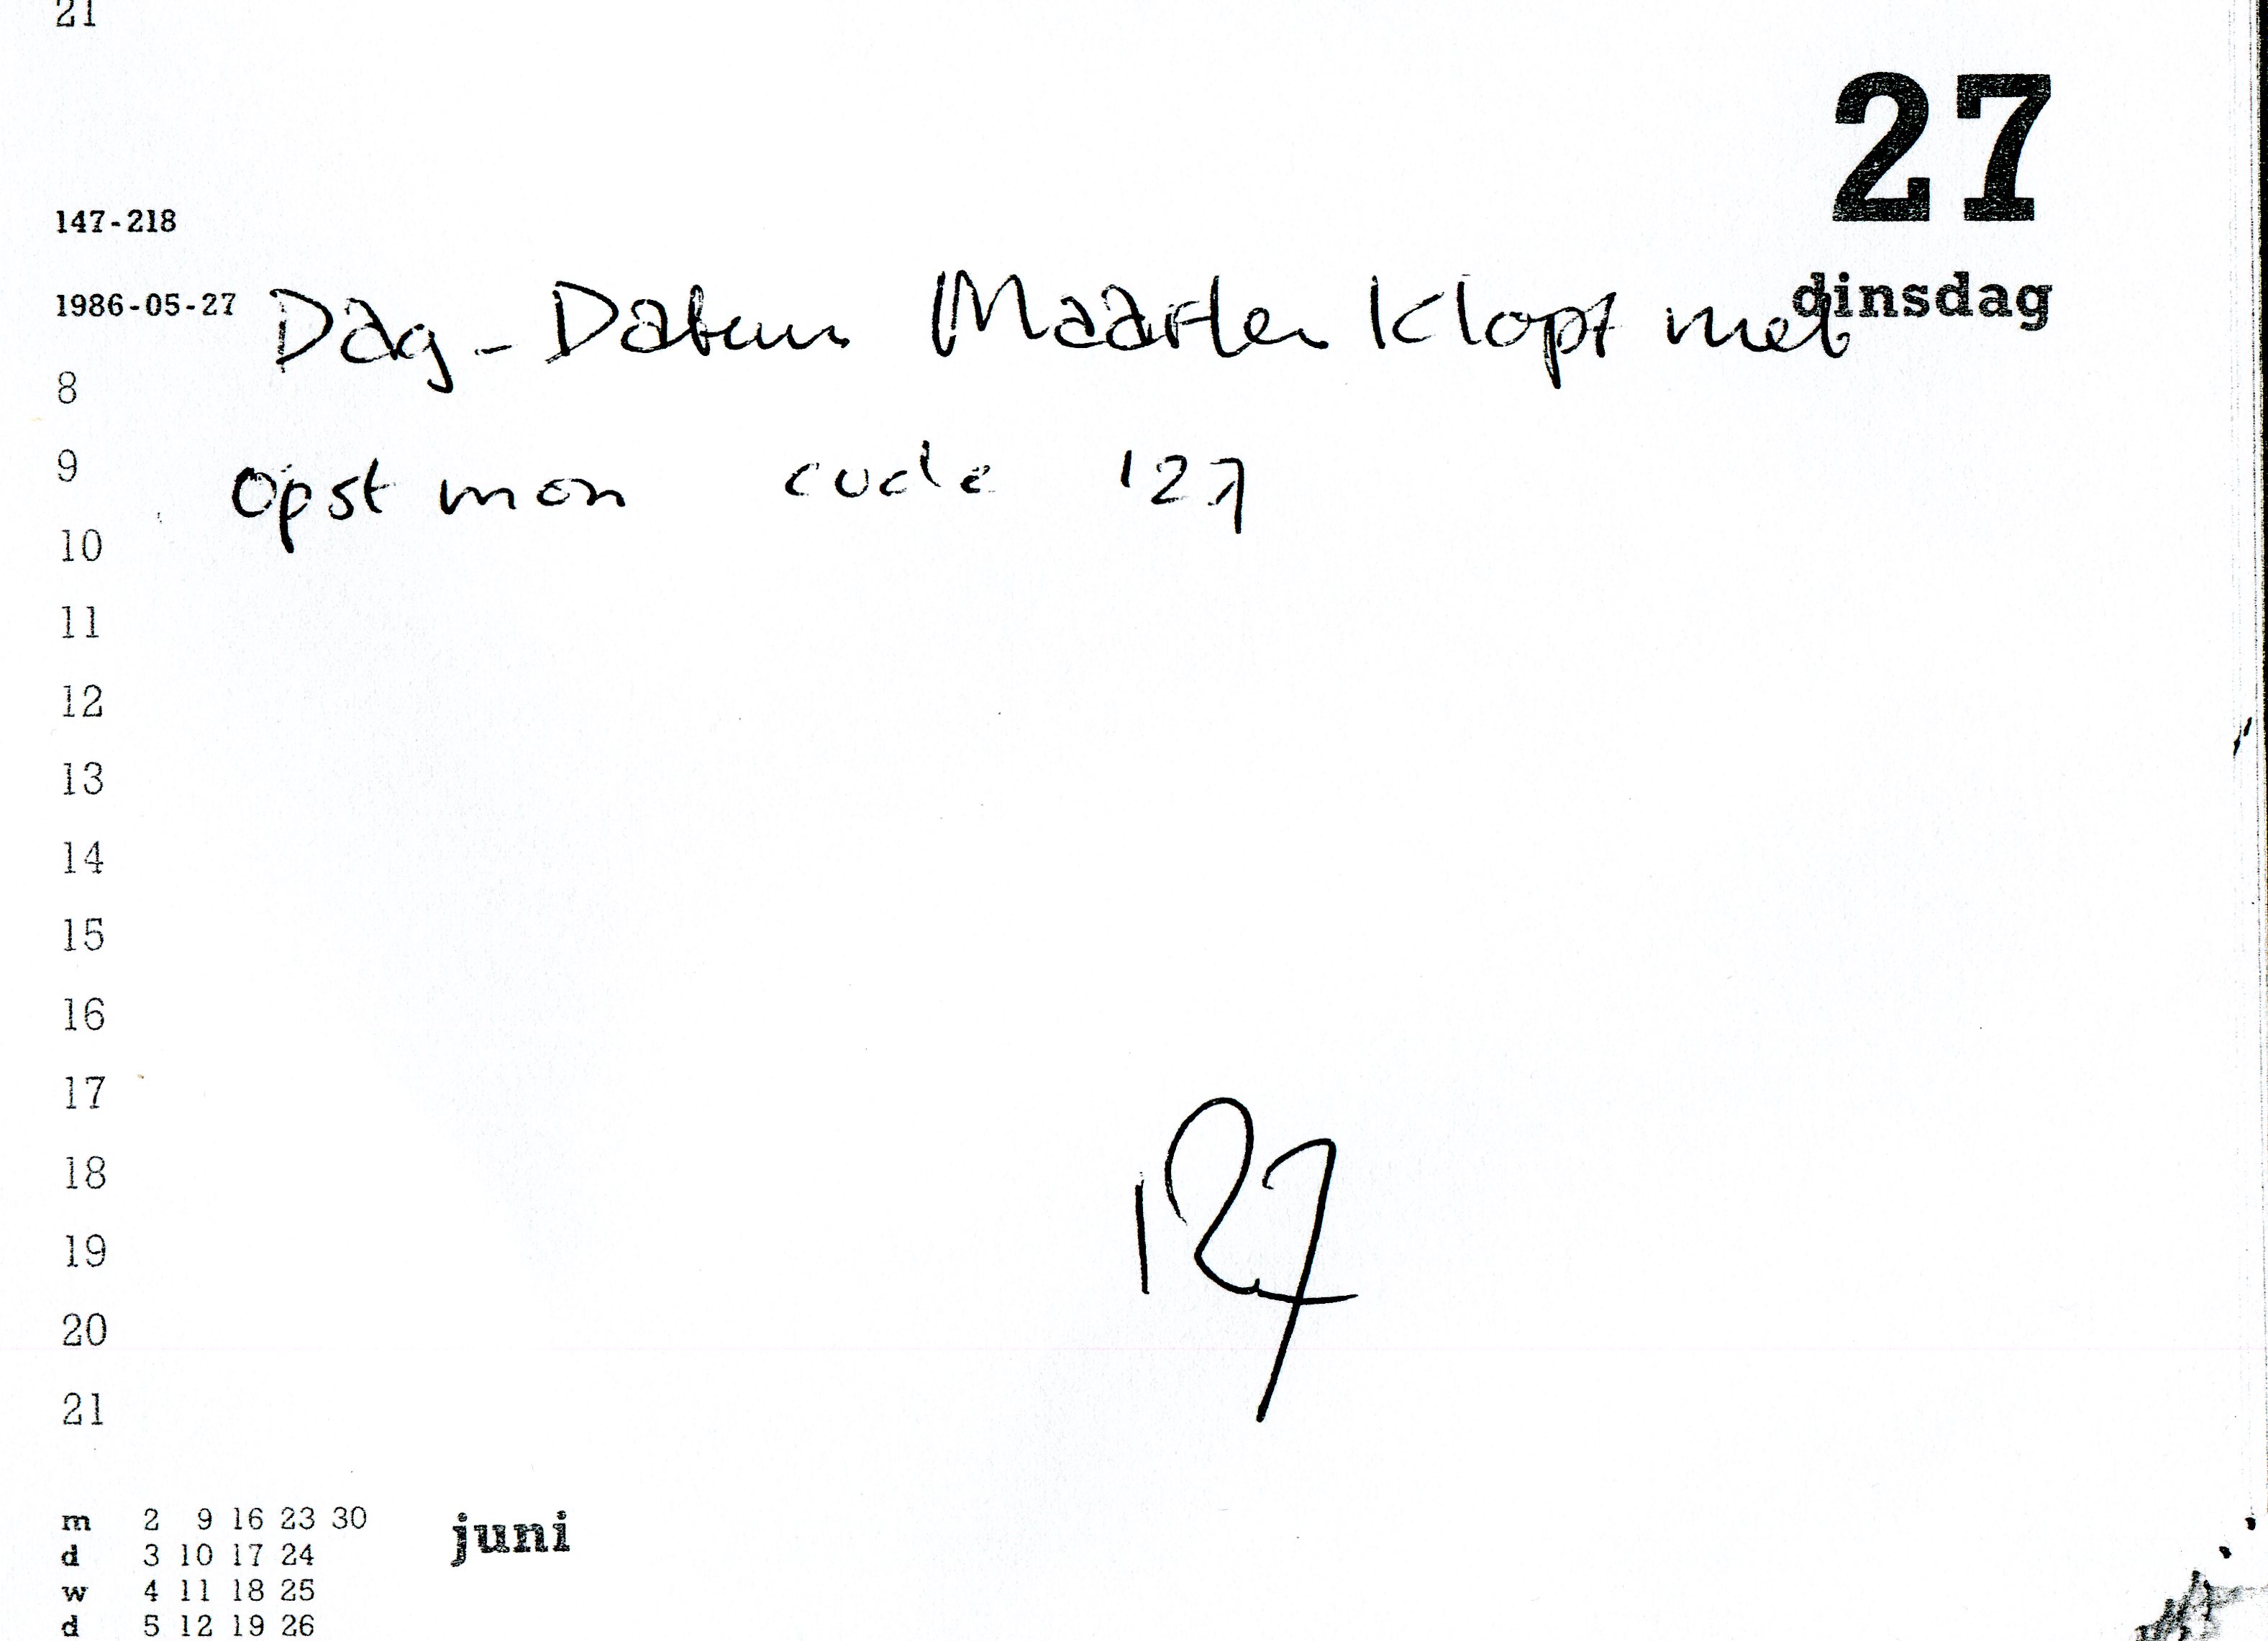 21
27
147-218
dinsdag
1986-05-27 Dag-Datum Maarten klopt met
8
9 opst mon code 127
10
11
12
13
14
15
16
17
18
127
19
20
21
m 2 9 16 23 30 juni
d 3 10 17 24
w 4 11 18 25
d 5 12 19 26